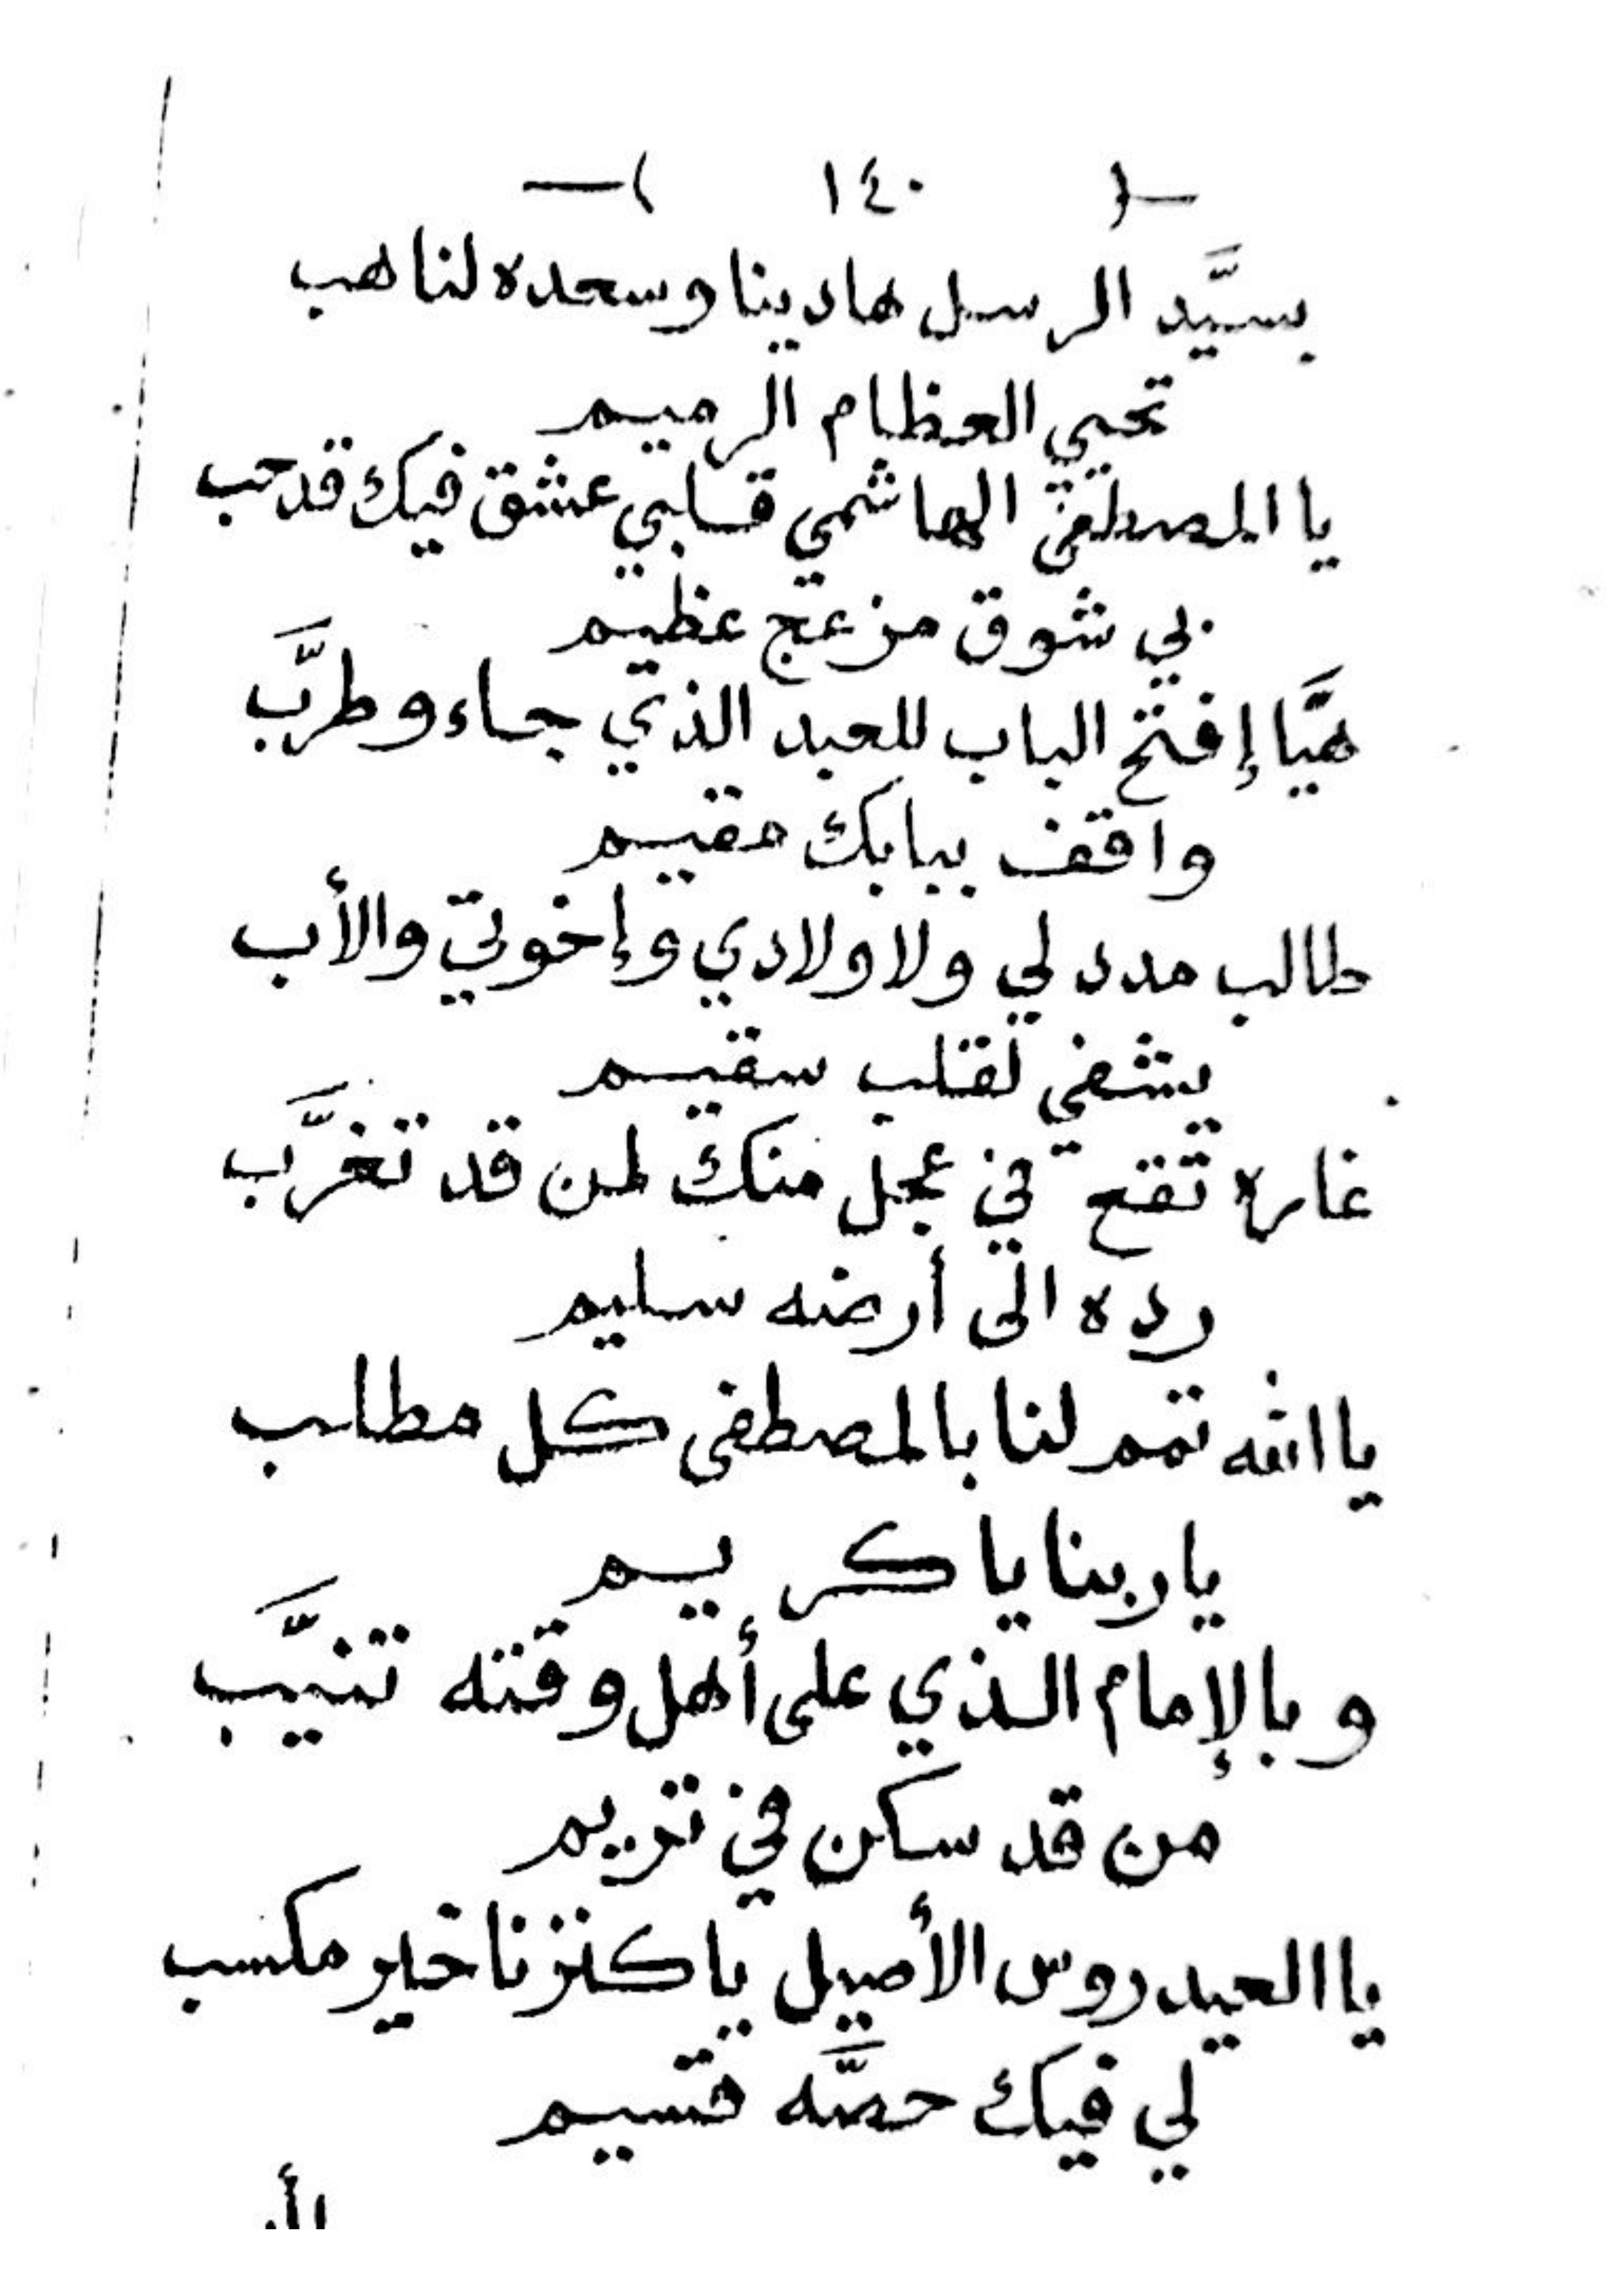 -( ١٤٠ )-
بسيَّد الرسل هادينا وسعده لنا هب
تحيي العظام الرميم
يا المصطفى الهاشمي قلبي عشق فيك قد حب
بي شوق مزعج عظيم
هيَّا إفتح الباب للعبد الذي جاء وطرَّب
واقف ببابك مقيم
طالب مدد لي ولاولادي وإخوتي والأب
يشفي لقلب سقيم
غاره تقع في عجل منك لمن قد تغرَّب
رده الى أرضه سليم
يا الله تمم لنا بالمصطفى كل مطلب
يا ربنا يا كريم
وبالإمام الذي على أهل وقته تنيَّب
من قد سكن في تريم
يا العيدروس الأصيل يا كنزنا خير مكسب
لي فيك حصَّه قسيم